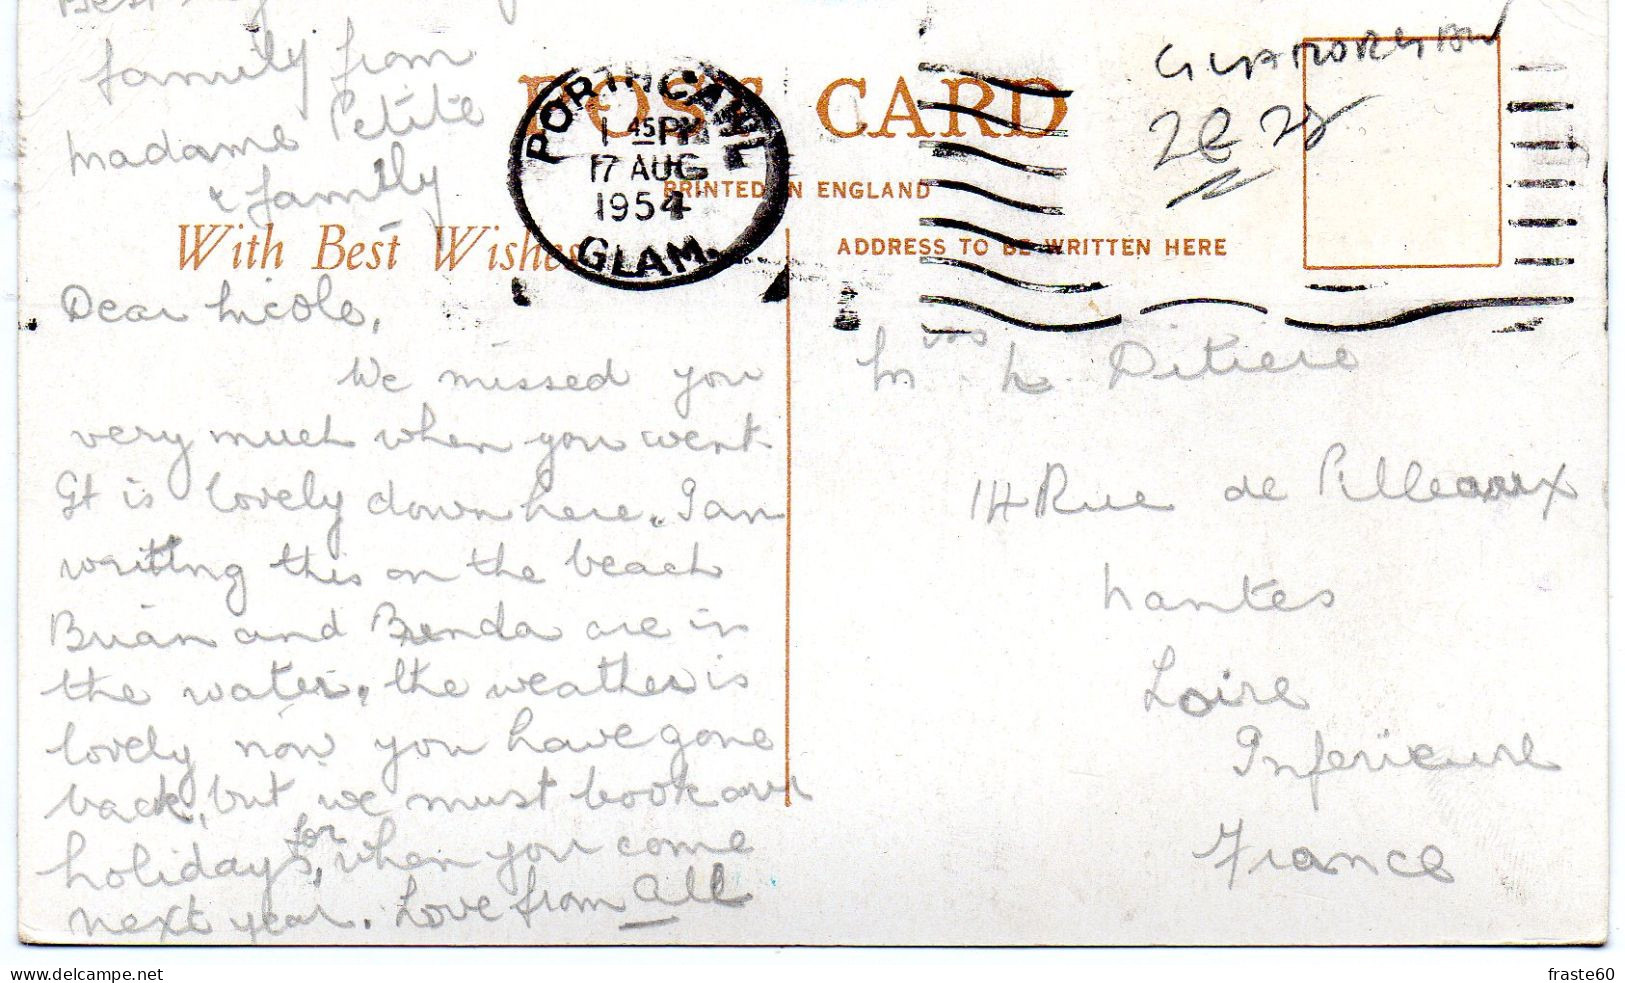 family from
Madame Petite
& family
POST CARD
PORTHCAWL
1 45 PM
17 AUG
1954
GLAM.
PRINTED IN ENGLAND
GLAMORGAN
With Best Wishes
ADDRESS TO BE WRITTEN HERE
Dear Nicole,
We missed you
very much when you went
It is lovely down here. I am
writting this on the beach
Brian and Brenda are in
the water, the weather is
lovely now you have gone
back, but we must book our
holidays for when you come
next year. Love from All
Miss N.
14 Rue de
Nantes
Loire
Inferieure
France
delcampe.net
fraste60